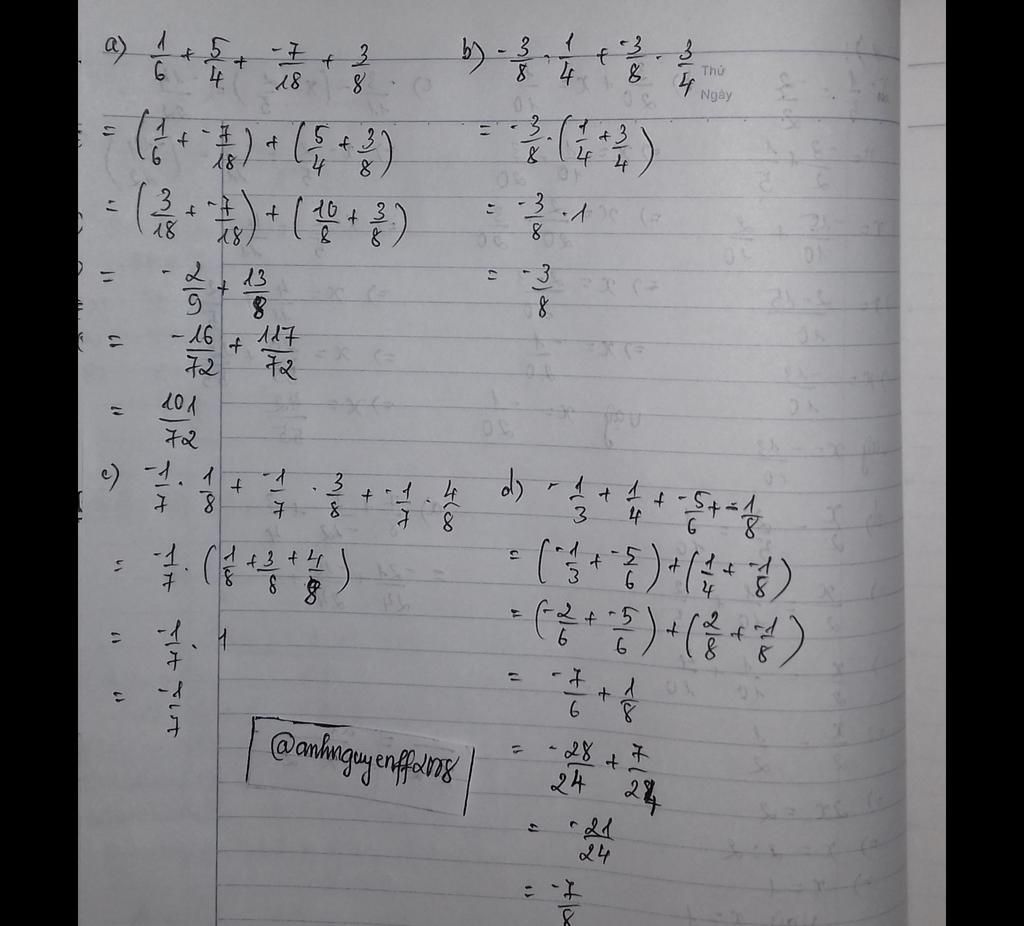 a) 1/6 + 5/4 + -7/18 + 3/8
= (1/6 + -7/18) + (5/4 + 3/8)
= (3/18 + -7/18) + (10/8 + 3/8)
= -2/9 + 13/8
= -16/72 + 117/72
= 101/72
b) -3/8 . 1/4 + -3/8 . 3/4
= -3/8 . (1/4 + 3/4)
= -3/8 . 1
= -3/8
Thứ
Ngày
c) -1/7 . 1/8 + -1/7 . 3/8 + -1/7 . 4/8
= -1/7 . (1/8 + 3/8 + 4/8)
= -1/7 . 1
= -1/7
d) -1/3 + 1/4 + -5/6 + -1/8
= (-1/3 + -5/6) + (1/4 + -1/8)
= (-2/6 + -5/6) + (2/8 + -1/8)
= -7/6 + 1/8
= -28/24 + 7/24
= -21/24
= -7/8